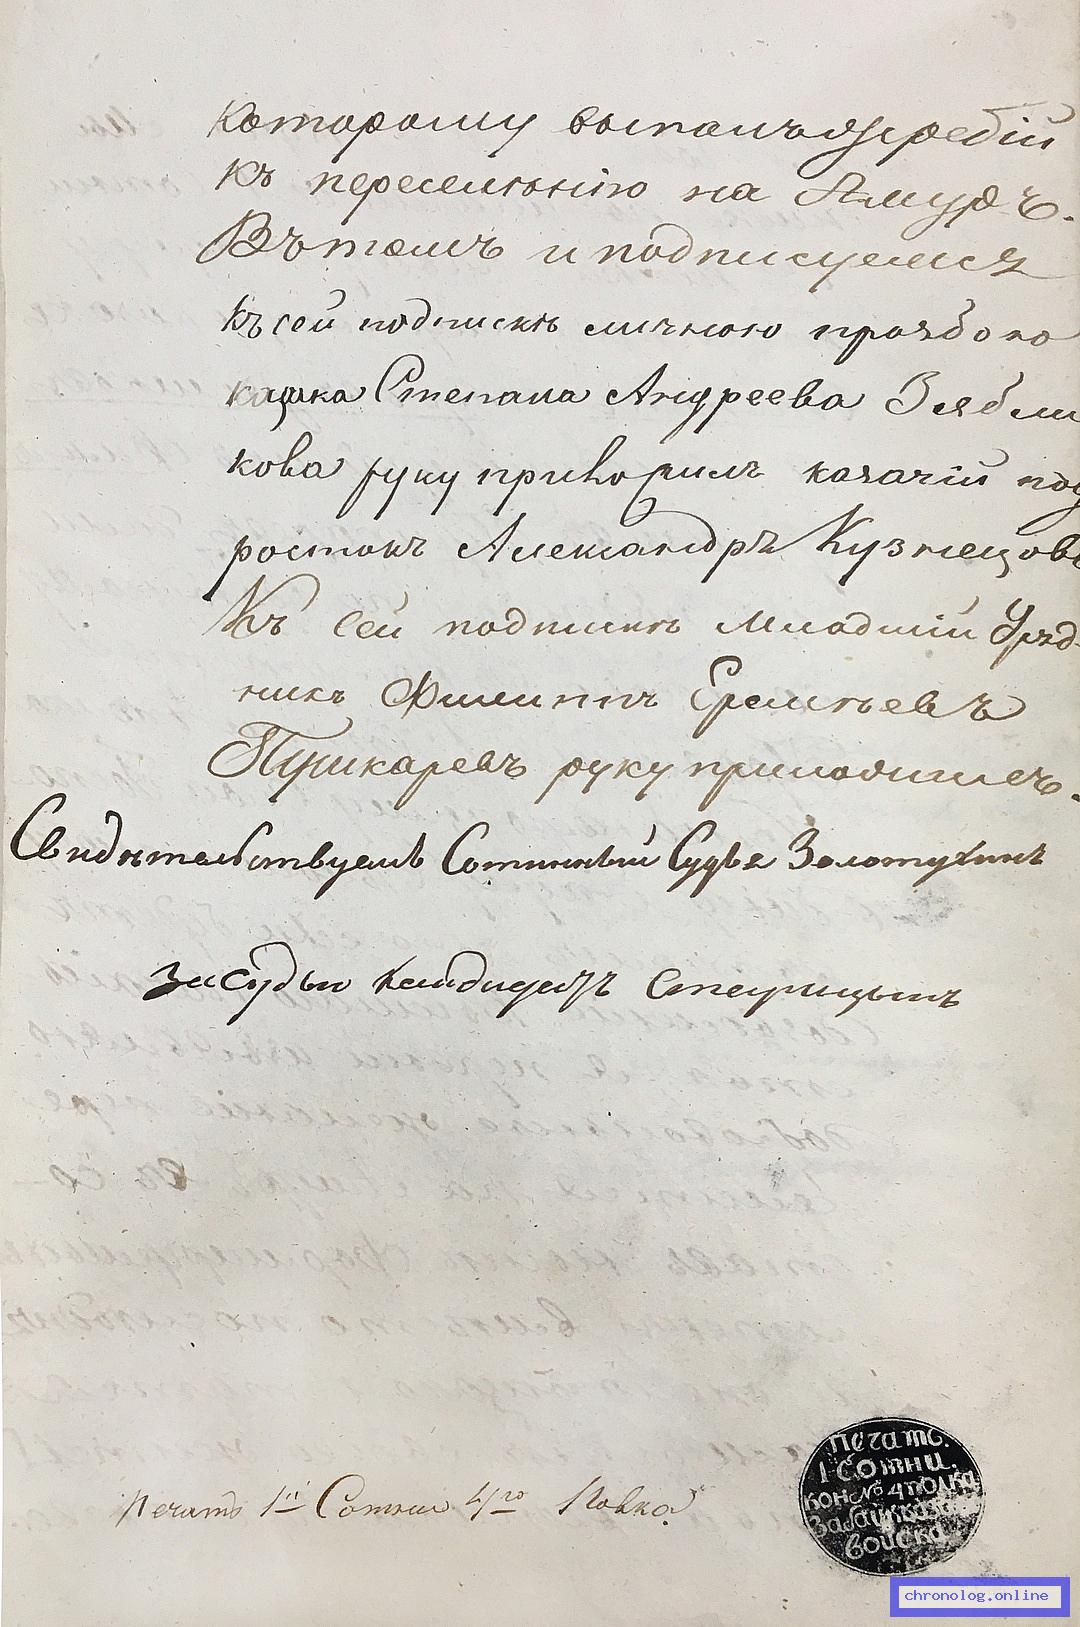 которому выпалъ жребій
къ переселѣнію на Амуръ.
Въ томъ и подписуемся
Къ сей подпискѣ личною прозбою
казака Степана Андреева Зябли
кова руку приложилъ казачій под
ростокъ Александръ Кузнецовъ
Къ сей подпискѣ младшій Уряд
никъ Филиппъ Ерѣмѣевъ
Пушкаревъ руку приложилъ.
Свидѣтельствуемъ Сотенный Судья Золотухинъ
За судью кандидатъ
Печать 1й Сотни 4го Полка
Печать.
1 Сотни.
кон. № 4 полка
Забайк. каз.
войска
chronolog.online